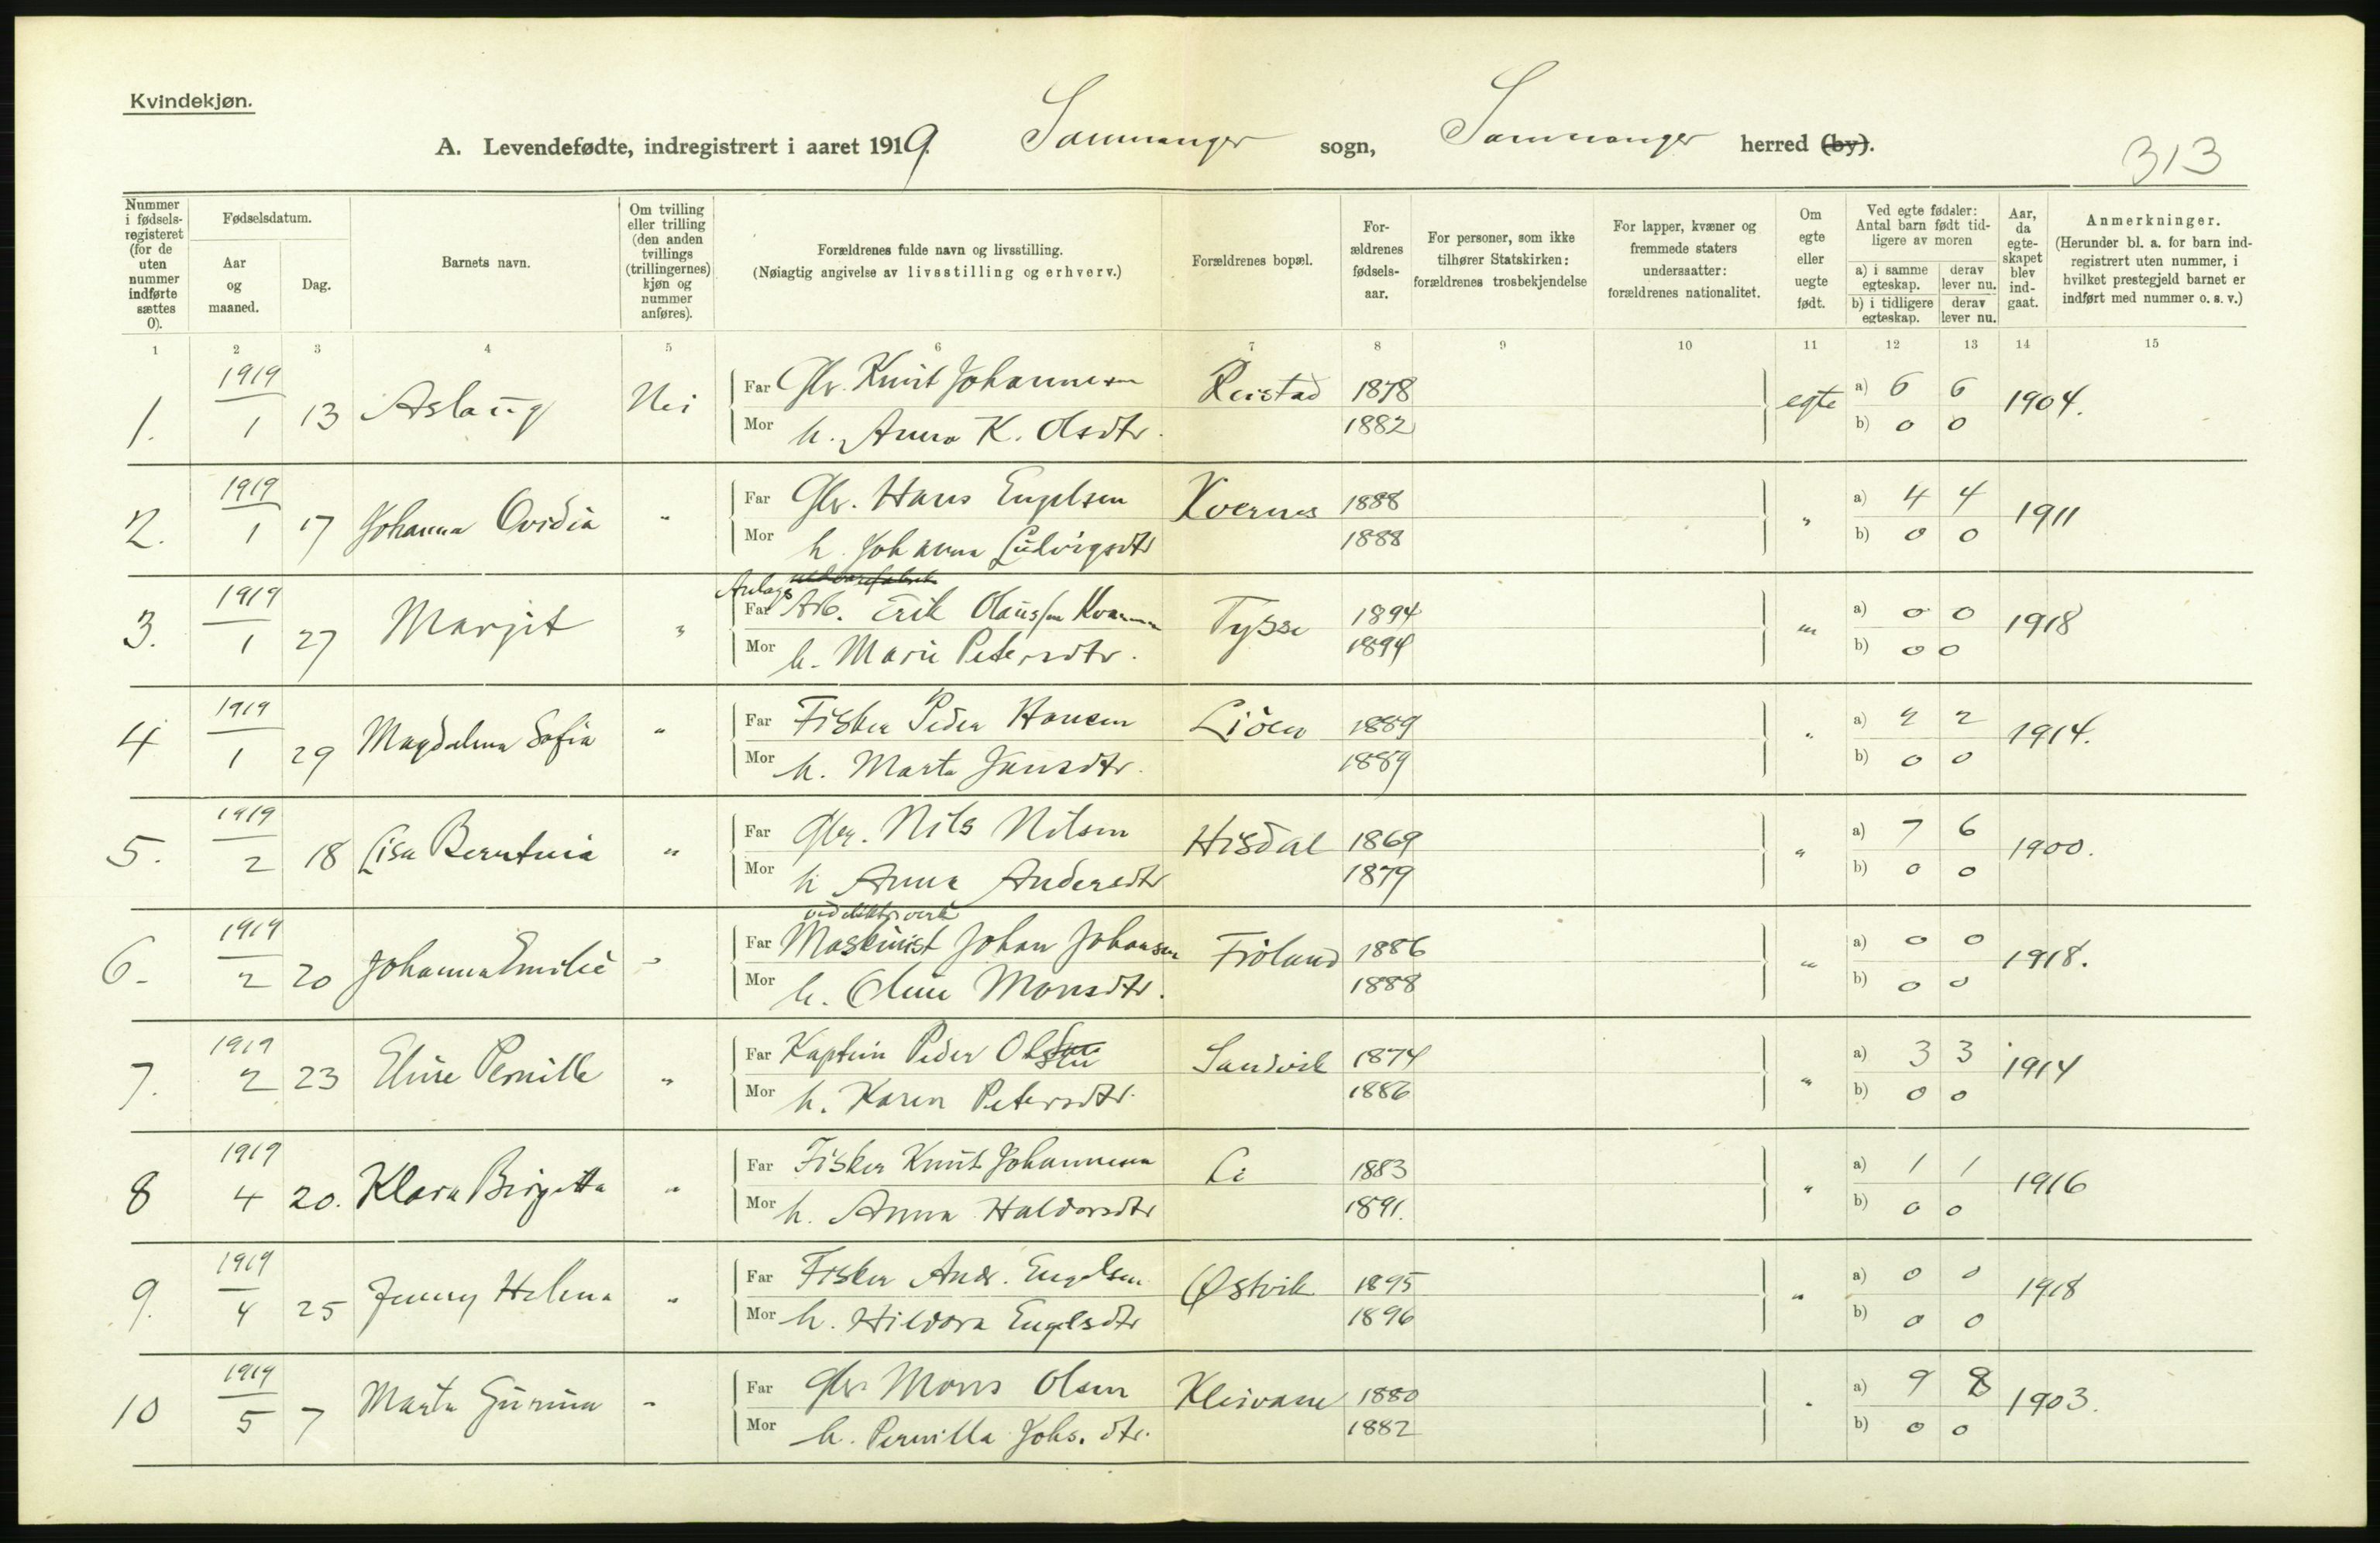 Kvindekjøn.
A. Levendefødte, indregistrert i aaret 1919. Samnanger sogn, Samnanger herred (by).
313
Nummer i fødselsregisteret (for de uten nummer indførte sættes 0).
Fødselsdatum.
Aar og maaned.
Dag.
Barnets navn.
Om tvilling eller trilling (den anden tvillings (trillingernes) kjøn og nummer anføres).
Forældrenes fulde navn og livsstilling.
(Nøiagtig angivelse av livsstilling og erhverv.)
Forældrenes bopæl.
Forældrenes fødselsaar.
For personer, som ikke tilhører Statskirken: forældrenes trosbekjendelse
For lapper, kvæner og fremmede staters undersaatter: forældrenes nationalitet.
Om egte eller uegte født.
Ved egte fødsler: Antal barn født tidligere av moren
a) i samme egteskap. derav lever nu.
b) i tidligere egteskap. derav lever nu.
Aar, da egteskapet blev indgaat.
Anmerkninger.
(Herunder bl. a. for barn indregistrert uten nummer, i hvilket prestegjeld barnet er indført med nummer o. s. v.)
1 2 3 4 5 6 7 8 9 10 11 12 13 14 15
1. 1919 1 13 Aslaug Nei Far Gbr. Knut Johannesen Reistad 1878 egte a) 6 6 1904.
Mor h. Anna K. Olsdtr. 1882 b) 0 0
2. 1919 1 17 Johanna Ovidia " Far Gbr. Hans Engelsen Kvernes 1888 " a) 4 4 1911
Mor h. Johanna Ludvigsdtr 1888 b) 0 0
Anlegs
3. 1919 1 27 Margit " Far Arb. Erik Olaussen Kvamme Tysse 1894 " a) 0 0 1918
Mor h. Marie Petersdtr. 1894 b) 0 0
4 1919 1 29 Magdalena Sofia " Far Fisker Peder Hansen Liöen 1889 " a) 2 2 1914.
Mor h. Marta Jansdtr. 1889 b) 0 0
5. 1919 2 18 Lisa Berntina " Far Gbr. Nils Nilsen Hisdal 1869 " a) 7 6 1900.
Mor h Anna Andersdtr 1879 b) 0 0
ved elektr. verk
6. 1919 2 20 Johanna Emilie " Far Maskinist Johan Johansen Fröland 1886 " a) 0 0 1918.
Mor h. Oline Monsdtr. 1888 b) 0 0
7. 1919 2 23 Eline Pernille " Far Kaptein Peder Olsen Sandvik 1874 " a) 3 3 1914
Mor h. Karen Petersdtr. 1886 b) 0 0
8 1919 4 20. Klara Birgitta " Far Fisker Knut Johannesen Li 1883 " a) 1 1 1916
Mor h. Anna Haldorsdtr 1891. b) 0 0
9. 1919 4 25 Jenny Helena " Far Fisker Andr. Engelsen Østvik 1895 " a) 0 0 1918
Mor h. Hildora Engelsdtr 1896 b) 0 0
10 1919 5 7 Marta Gurina " Far Gbr. Mons Olsen Kleivane 1880 " a) 9 8 1903.
Mor h. Pernilla Johs. dtr. 1882 b) 0 0